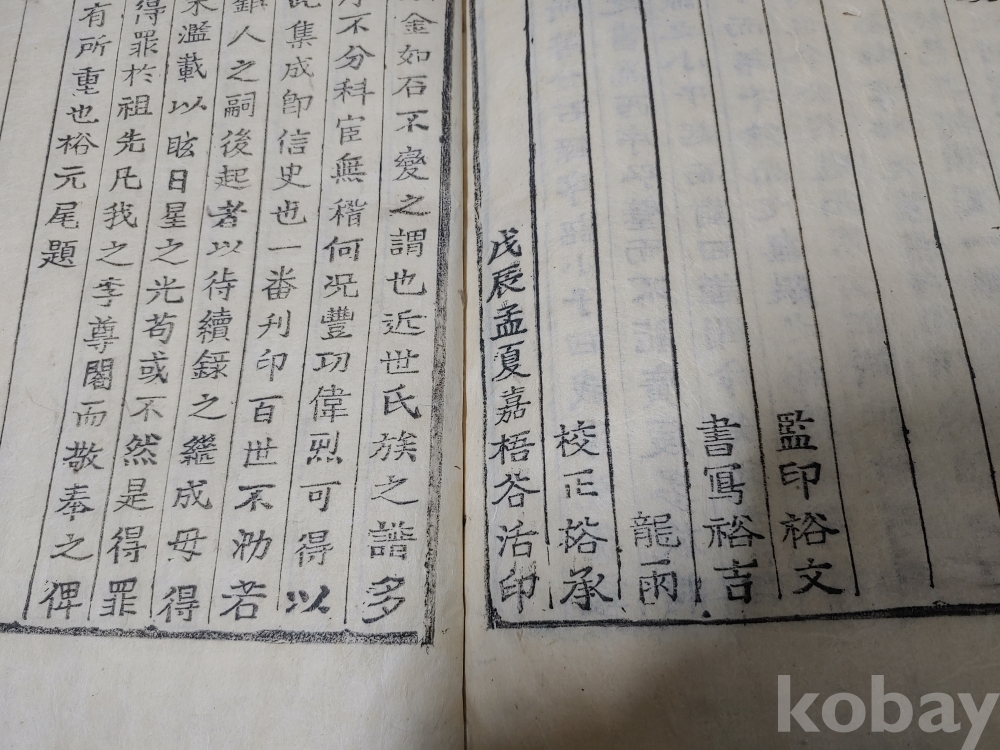 監印裕文
書寫裕吉
龍雨
校正裕承
戊辰孟夏嘉梧谷活印
金如石不變之謂也近世氏族之譜多
不分科宦無稽何况豐功偉烈可得以
集成卽信史也一番刊印百世不泐若
人之嗣後起者以待續錄之繼成毋得
濫載以眩日星之光苟或不然是得罪
得罪於祖先凡我之李尊閣而敬奉之俾
有所重也裕元尾題
kobay